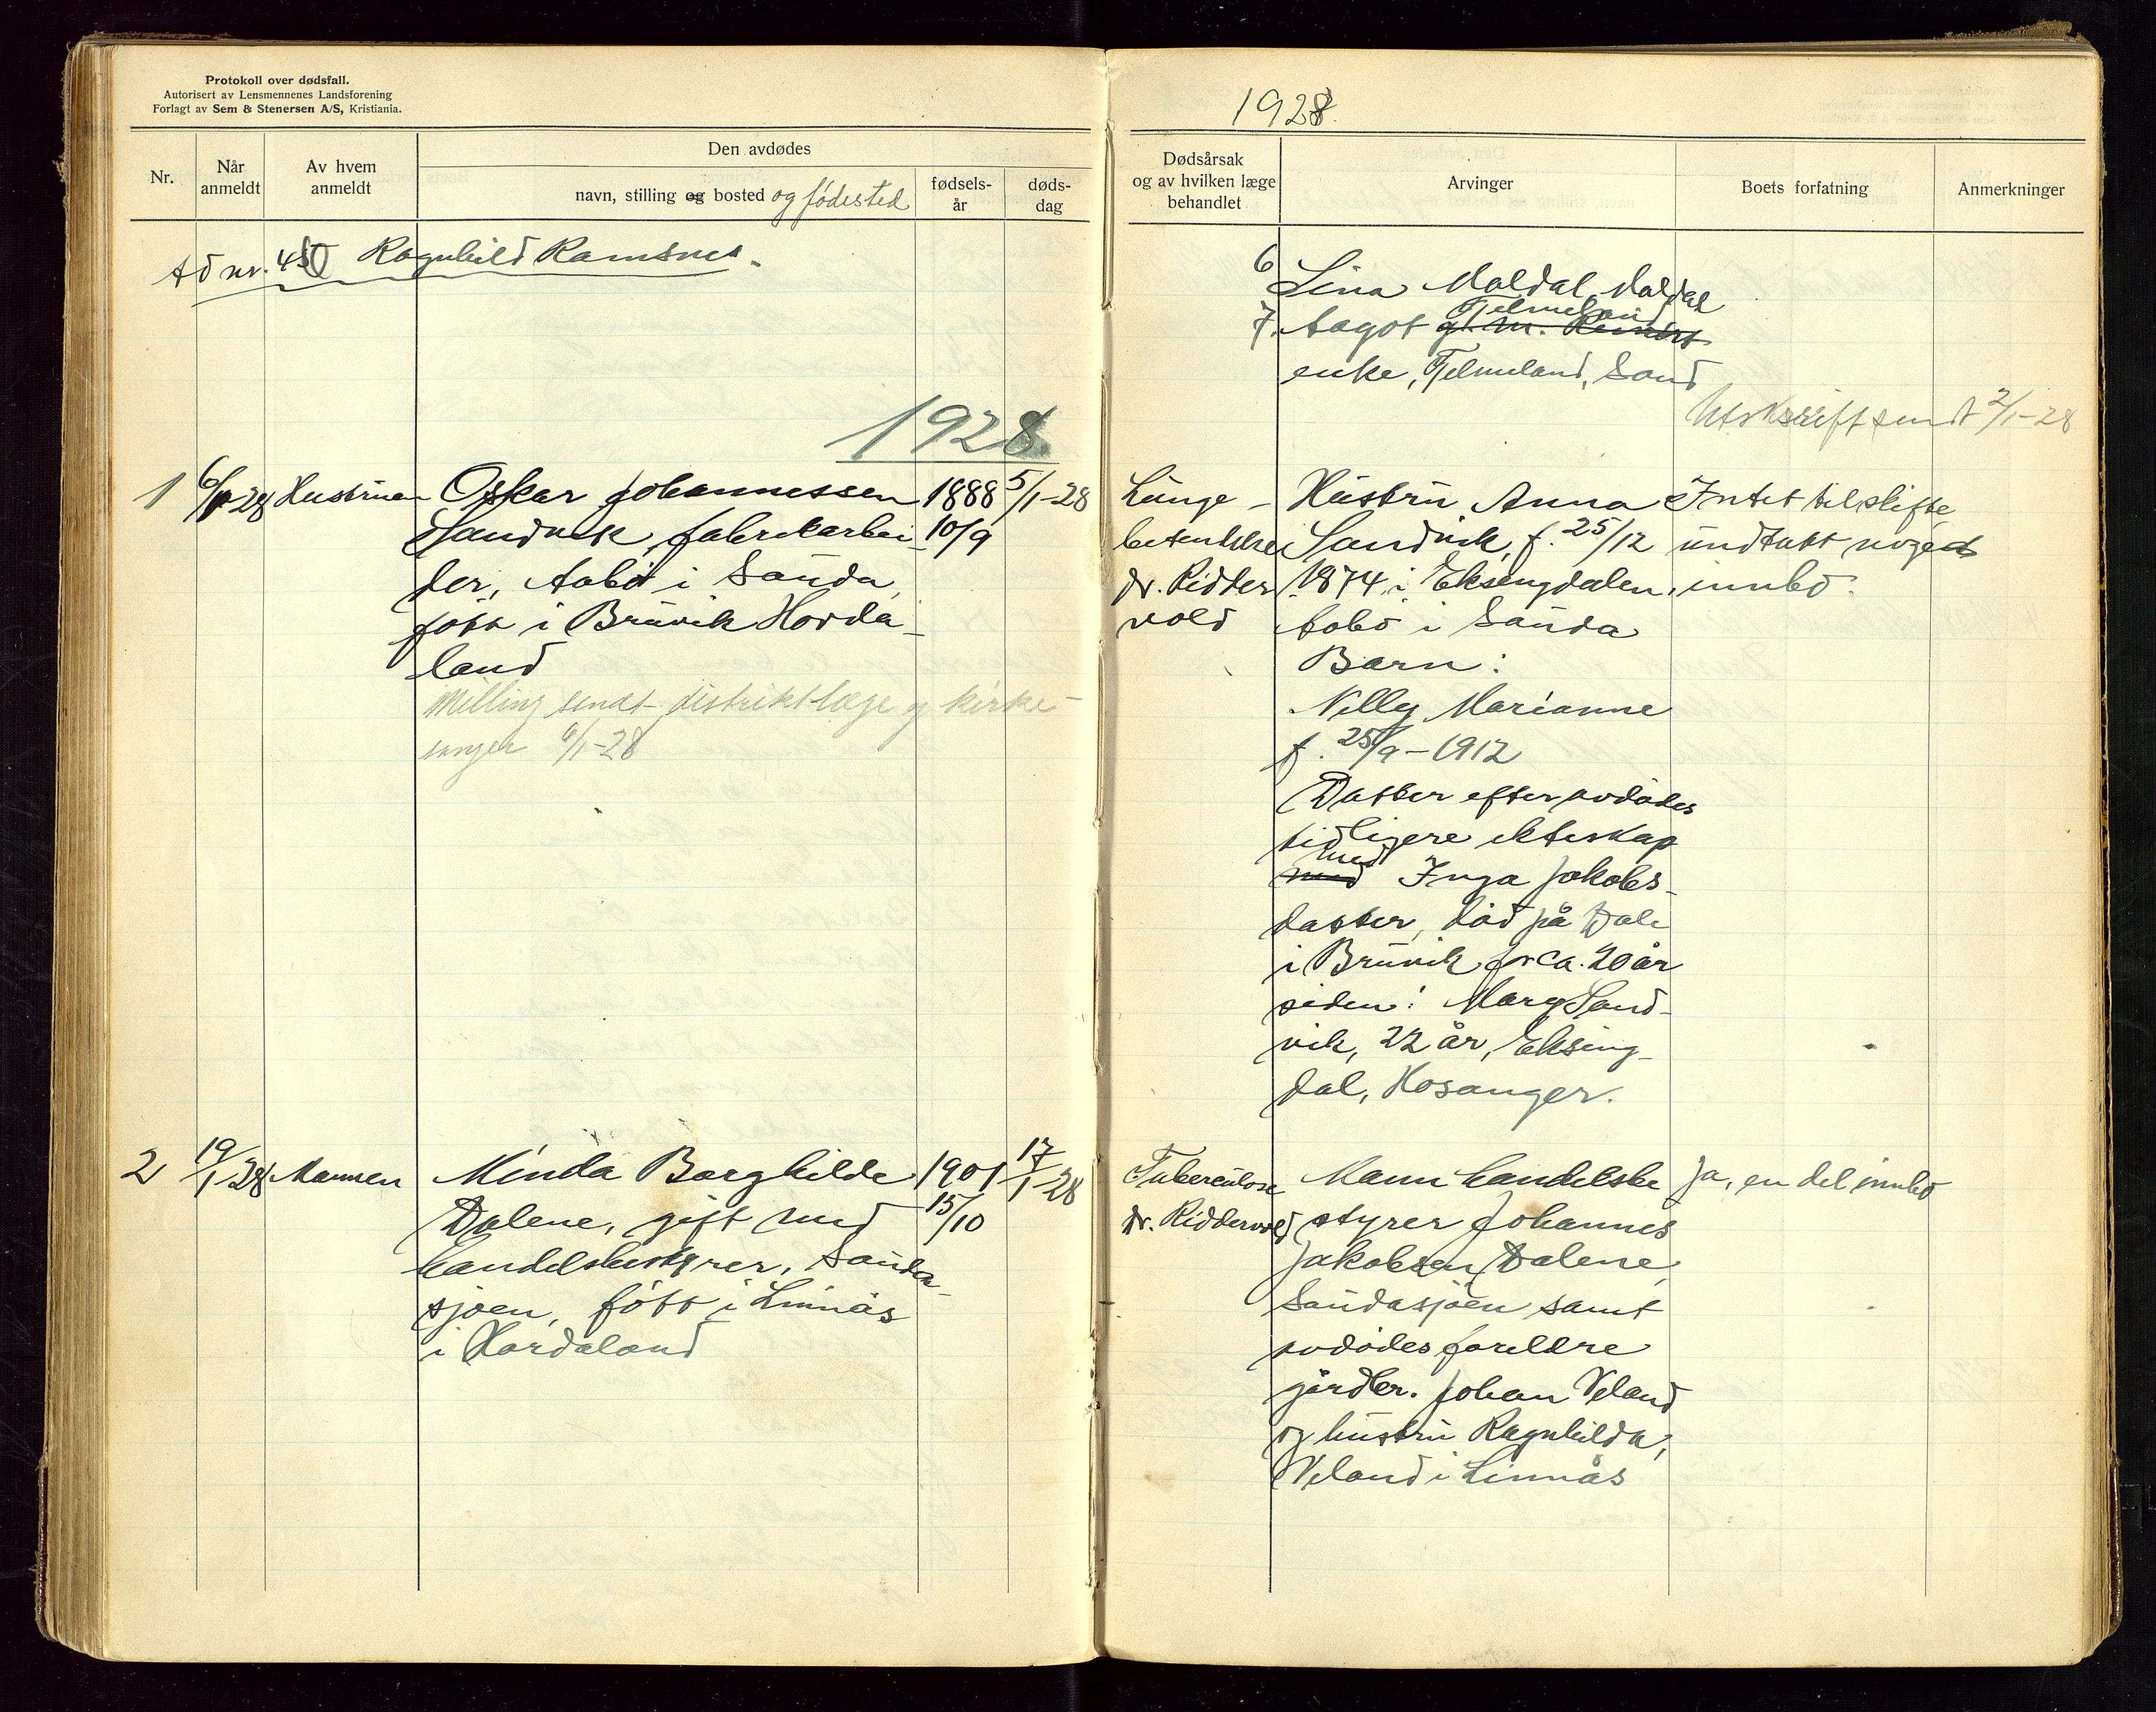 Protokoll over dødsfall.
Autorisert av Lensmennenes Landsforening
Forlagt av Sem & Stenersen A/S, Kristiania.
Nr.
Når
anmeldt
Av hvem
anmeldt
Den avdødes
navn, stilling og bosted og fødested
fødsels-
år
døds-
dag
Ad nr. 450 Ragnhild Ramsnes.
1928
1 6/1-28 Hustruen Oskar Johannessen 1888 5/1-28
Sandvik fabrikarbei- 10/9
der, Aabø i Sauda,
født i Bruvik Horda-
land
Melling sendt distriktslæge og kirke-
sanger 6/1-28
2 19/1 28 Mannen Minda Borghilde 1901 17/1-28
Dalene, gift med 15/10
handelsbestyrer, Sauda-
sjøen, født i Linnås
i Hordaland
1928.
Dødsårsak
og av hvilken læge
behandlet
Arvinger
Boets forfatning
Anmerkninger
6 Lina Maldal, Maldal
Tjelmeland
7. Aagot g. m.
enke, Tjelmeland, Sand
Utskrift sendt 2/1-28
Lunge-
betendelse
dr. Ridder
vold
Hustru Anna
Sandvik, f. 25/12
1874 i Eksingdalen,
Aabø i Sauda
Barn:
Nelly Marianne
f. 25/9-1912
Datter efter avdødes
tidligere ekteskap
med
med Inga Jakobs-
datter, død på Dale
i Bruvik for ca. 20 år
siden: Mary Sand-
vik, 22 år, Eksing-
dal, Hosanger.
Intet til skifte
undtatt noget
innbo.
Tuberculose
dr. Riddervold
Mann handelsbe
styrer Johannes
Jakobsen Dalene,
Saudasjøen samt
avdødes foreldre
gårdbr. Johan Veland
og hustru Ragnhilda,
Veland i Linnås
Ja, en del innbo